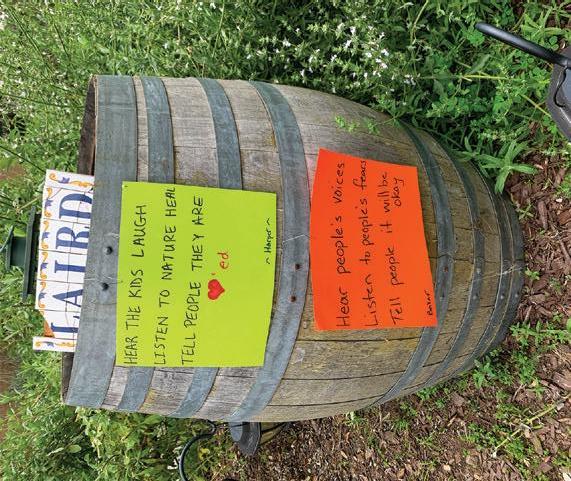 LAIRD
HEAR THE KIDS LAUGH
LISTEN TO NATURE HEAL
TELL PEOPLE THEY ARE
❤'ed
~ Harper ~
Hear people's voices
Listen to people's fears
Tell people it will be
okay